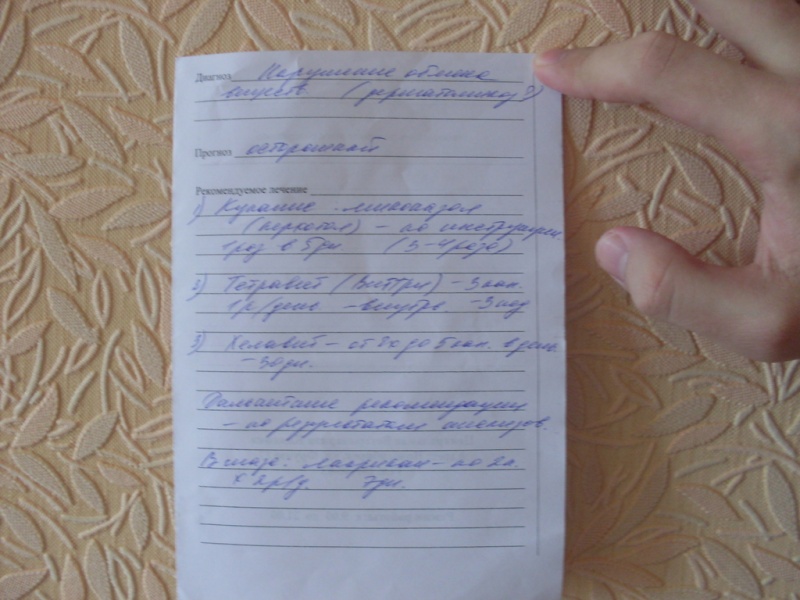 Диагноз Нарушение обмена
веществ (дерматомикоз?)
Прогноз осторожный
Рекомендуемое лечение
1) Купание
- по инструкции.
1 раз в 5 дн. (3-4 раза)
2) Тетравит (Виттри) - 3 кап.
1 р/день - внутрь
3) Хелавит - от 2х до 5 кап. в день
- 30 дн.
Дальнейшие рекомендации
- по результатам анализов.
В глаза: - по 2к.
7 дн.